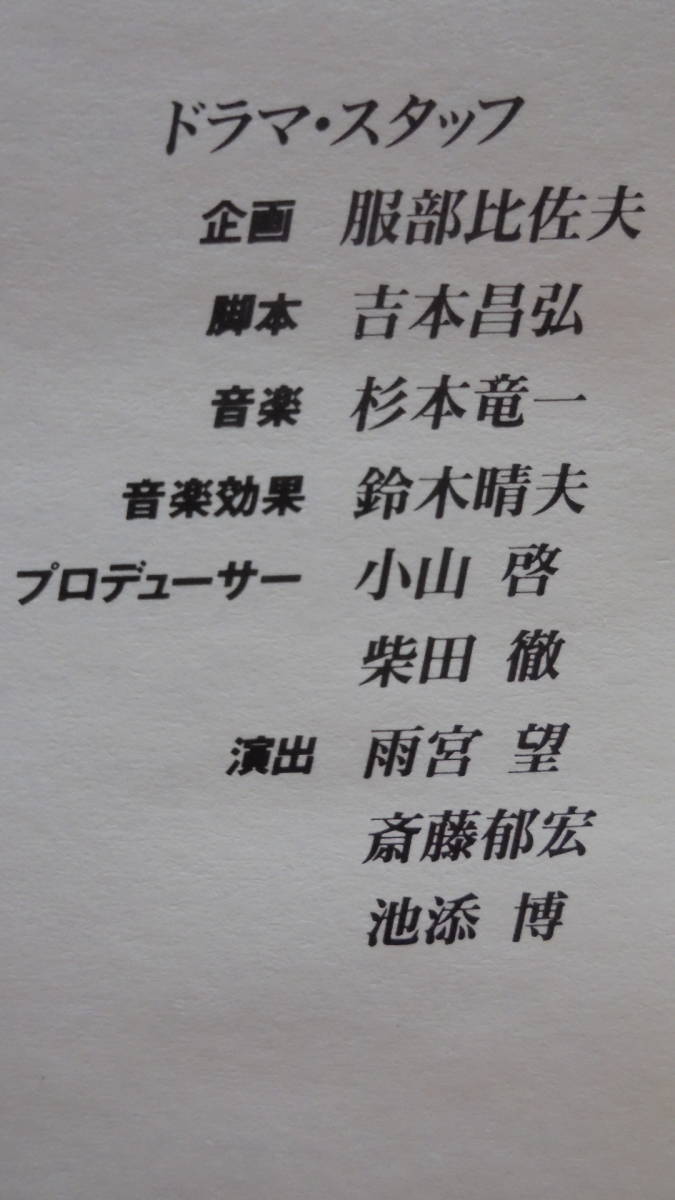 ドラマ・スタッフ
企画 服部比佐夫
脚本 吉本昌弘
音楽 杉本竜一
音楽効果 鈴木晴夫
プロデューサー 小山 啓
柴田 徹
演出 雨宮 望
斎藤郁宏
池添 博